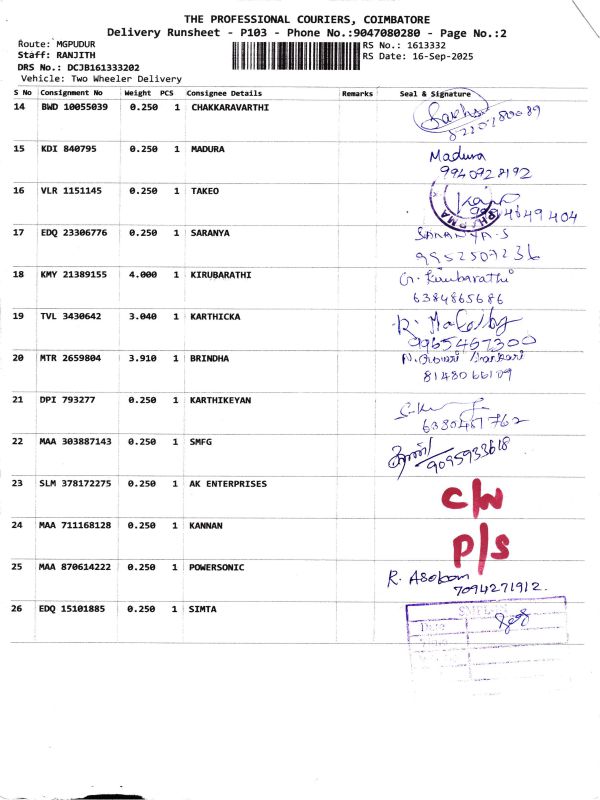 THE PROFESSIONAL COURIERS, COIMBATORE
Delivery Runsheet - P103 - Phone No.:9047080280 - Page No.:2
Route: MGPUDUR
RS No.: 1613332
Staff: RANJITH
RS Date: 16-Sep-2025
DRS No.: DCJB161333202
Vehicle: Two Wheeler Delivery
S No Consignment No Weight PCS Consignee Details Remarks Seal & Signature
14 BWD 10055039 0.250 1 CHAKKARAVARTHI
15 KDI 840795 0.250 1 MADURA Madura
9940928192
16 VLR 1151145 0.250 1 TAKEO
PHARMA
17 EDQ 23306776 0.250 1 SARANYA SARANYA.S
9952507236
18 KMY 21389155 4.000 1 KIRUBARATHI G. Kirubarathi
6384865686
19 TVL 3430642 3.040 1 KARTHICKA
9965467300
20 MTR 2659804 3.910 1 BRINDHA
8148066109
21 DPI 793277 0.250 1 KARTHIKEYAN
6380481762
22 MAA 303887143 0.250 1 SMFG
9095933618
23 SLM 378172275 0.250 1 AK ENTERPRISES C/W
24 MAA 711168128 0.250 1 KANNAN P/S
25 MAA 870614222 0.250 1 POWERSONIC R. Asokan
7094271912.
26 EDQ 15101885 0.250 1 SIMTA
Date